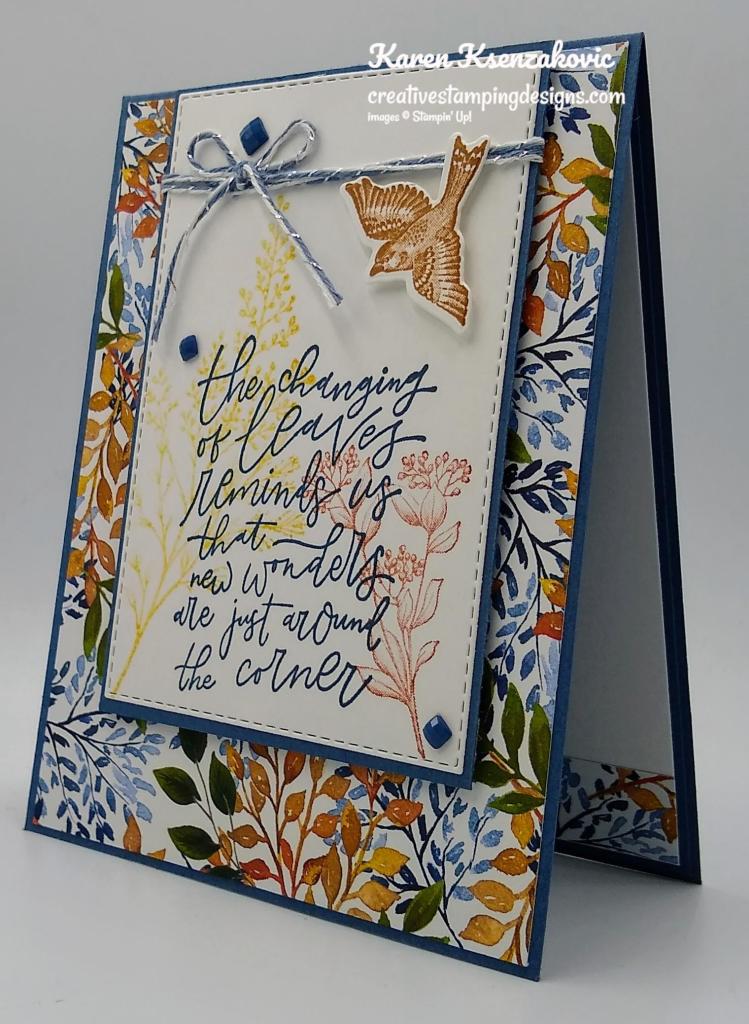 Karen Ksenzakovic
creativestampingdesigns.com
images © Stampin' Up!
the changing
of leaves
reminds us
that
new wonders
are just around
the corner